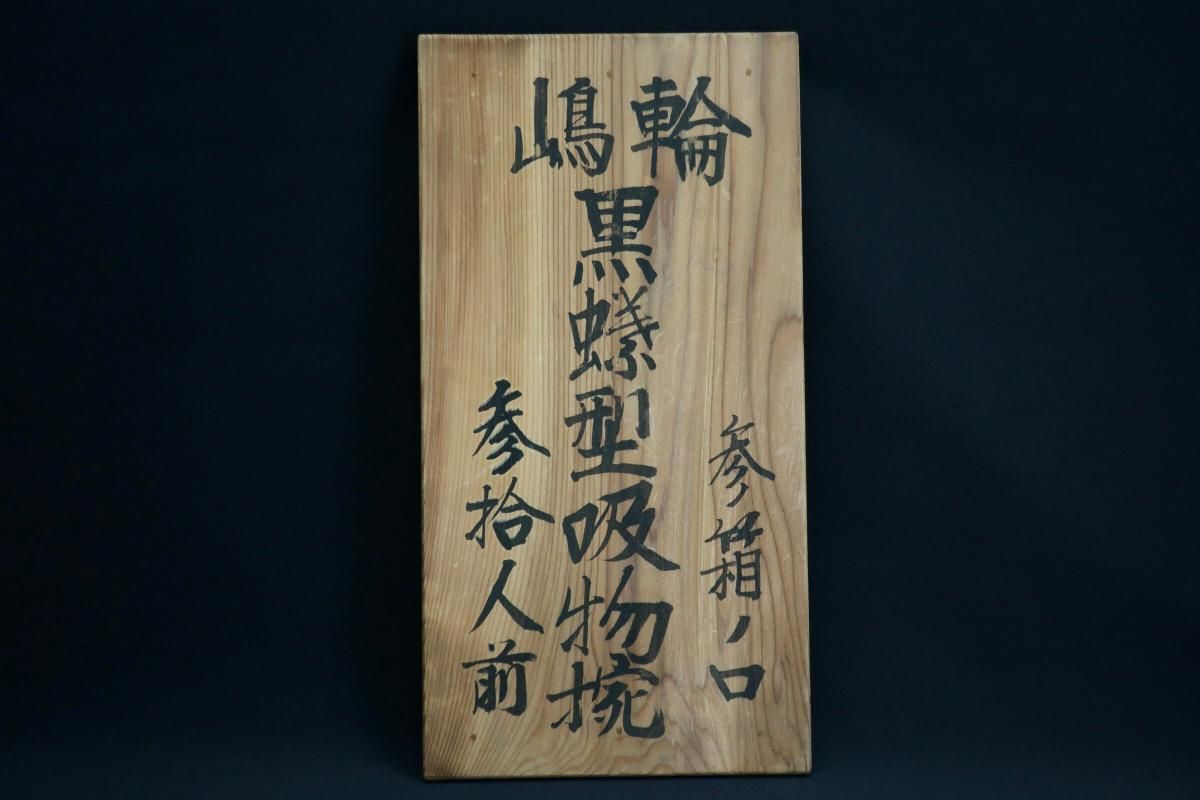 輪嶋
参箱ノ口
黒蝶型吸物椀
参拾人前